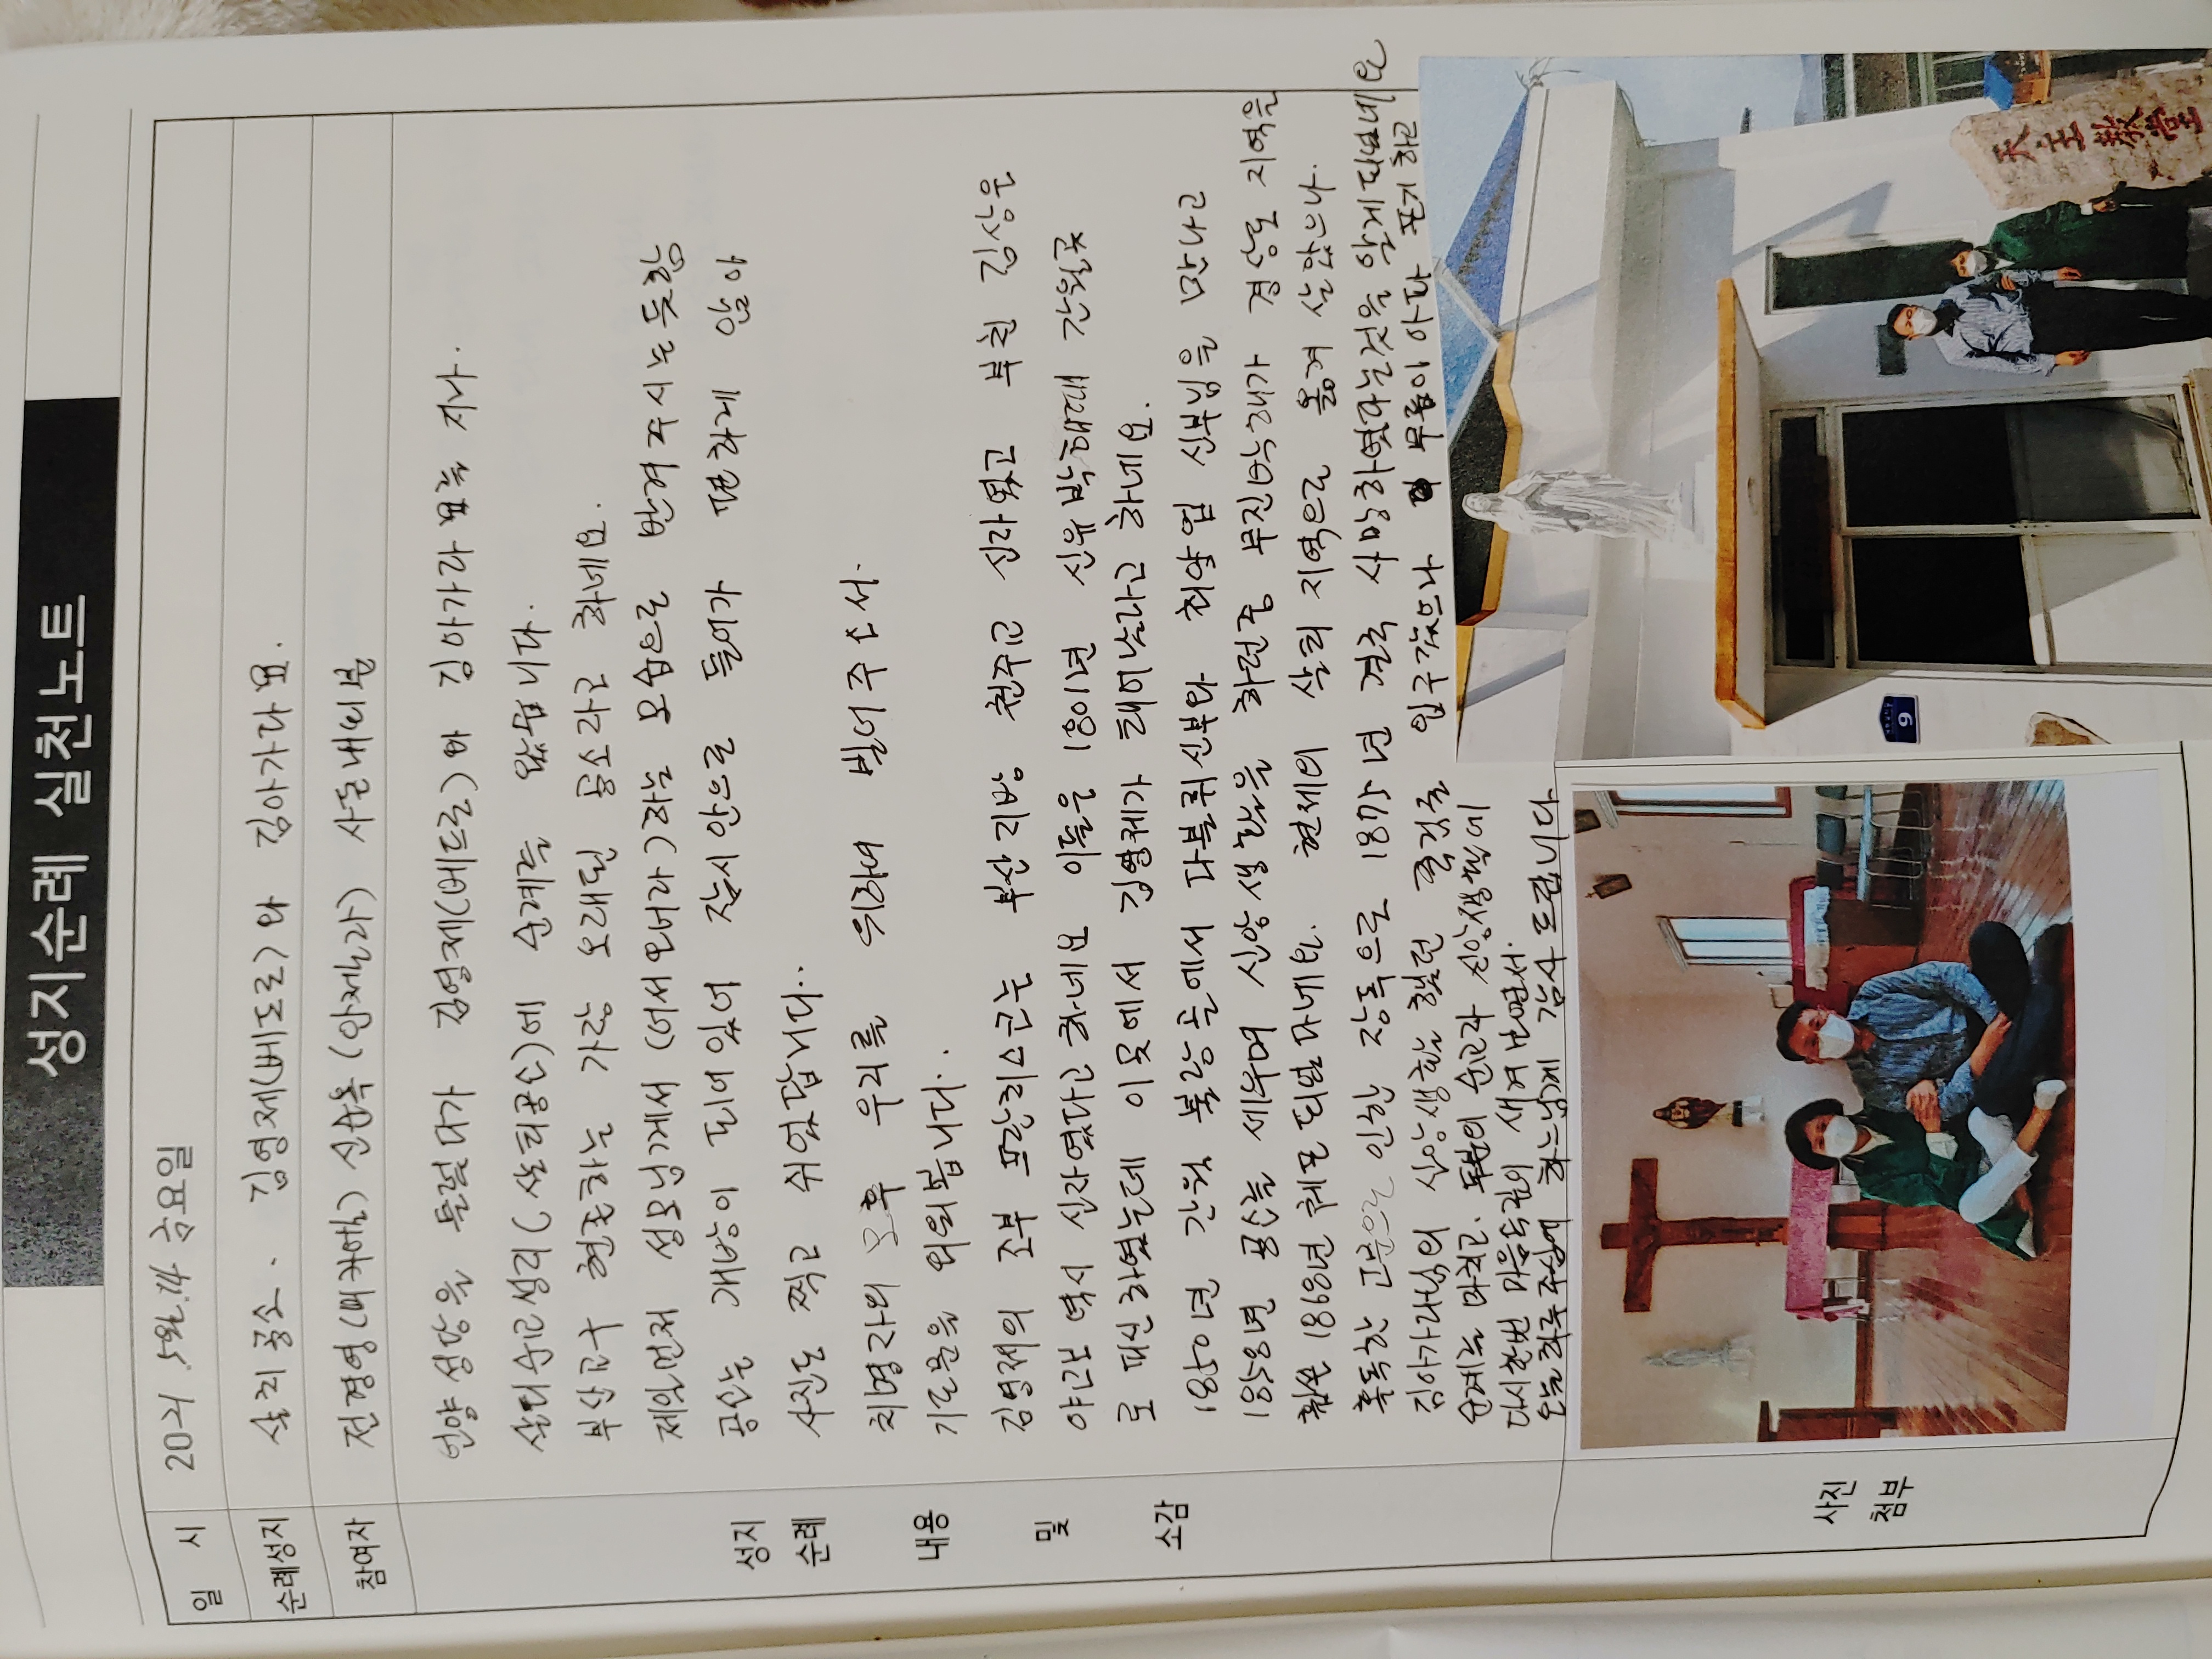 성지순례 실천노트
일 시 2021.5월.14 금요일
순례성지 살티공소. 김영제(베드로)와 김아가다묘.
참여자 전경영(미카엘) 신순옥(안젤라) 사돈내외분
성지
순례
내용
및
소감
언양성당을 들렸다가 김영제(베드로)와 김아가다묘를 지나.
살티순교성지(살티공소)에 순례를 왔습니다.
부산교구 현존하는 가장 오래된 공소라고 하네요.
제일먼저 성모님께서 (어서와너라)라는 모습으로 반겨주시는듯함
공소는 개방이 되어있어 잠시안으로 들어가 편하게 앉아
사진도 찍고 쉬었답니다..
치명자의 모후 우리를 위하여 빌어주소서.
기도문을 외워봅니다.
김영제의 조부 프란치스코는 부산지방 천주교 신자였고 부친 김상은
야고보 역시 신자였다고 하네요 이들은 1801년 신유박해때 간월곳
로 피신하였는데 이곳에서 김영제가 태어났다고 하네요.
1850년 간월 불당골에서 다블뤼신부와 최양업 신부님을 만나고
1858년 공소를 세우며 신앙생활을 하던중 무진박해가 경상도 지역을
휩쓴 1868년 체포되었다네요. 현제의 살티 지역으로 옮겨 살았으나.
혹독한 고문으로 인한 장독으로 1875년 결국 사망하였다는것을 알게되었네요
김아가다님의 신앙생활을 했던 굴길을 입구갔으나 무릎이 아파 포기하고
순례를 마치고. 두분의 순교와 신앙생활에
다시한번 마음속깊이 새겨보면서.
오늘하루 주심에 하느님께 감사드립니다
사진
첨부
天主教會
9